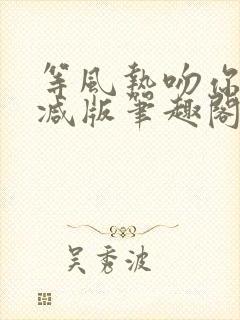 等風熱吻你
减版筆趣閣
吴秀波